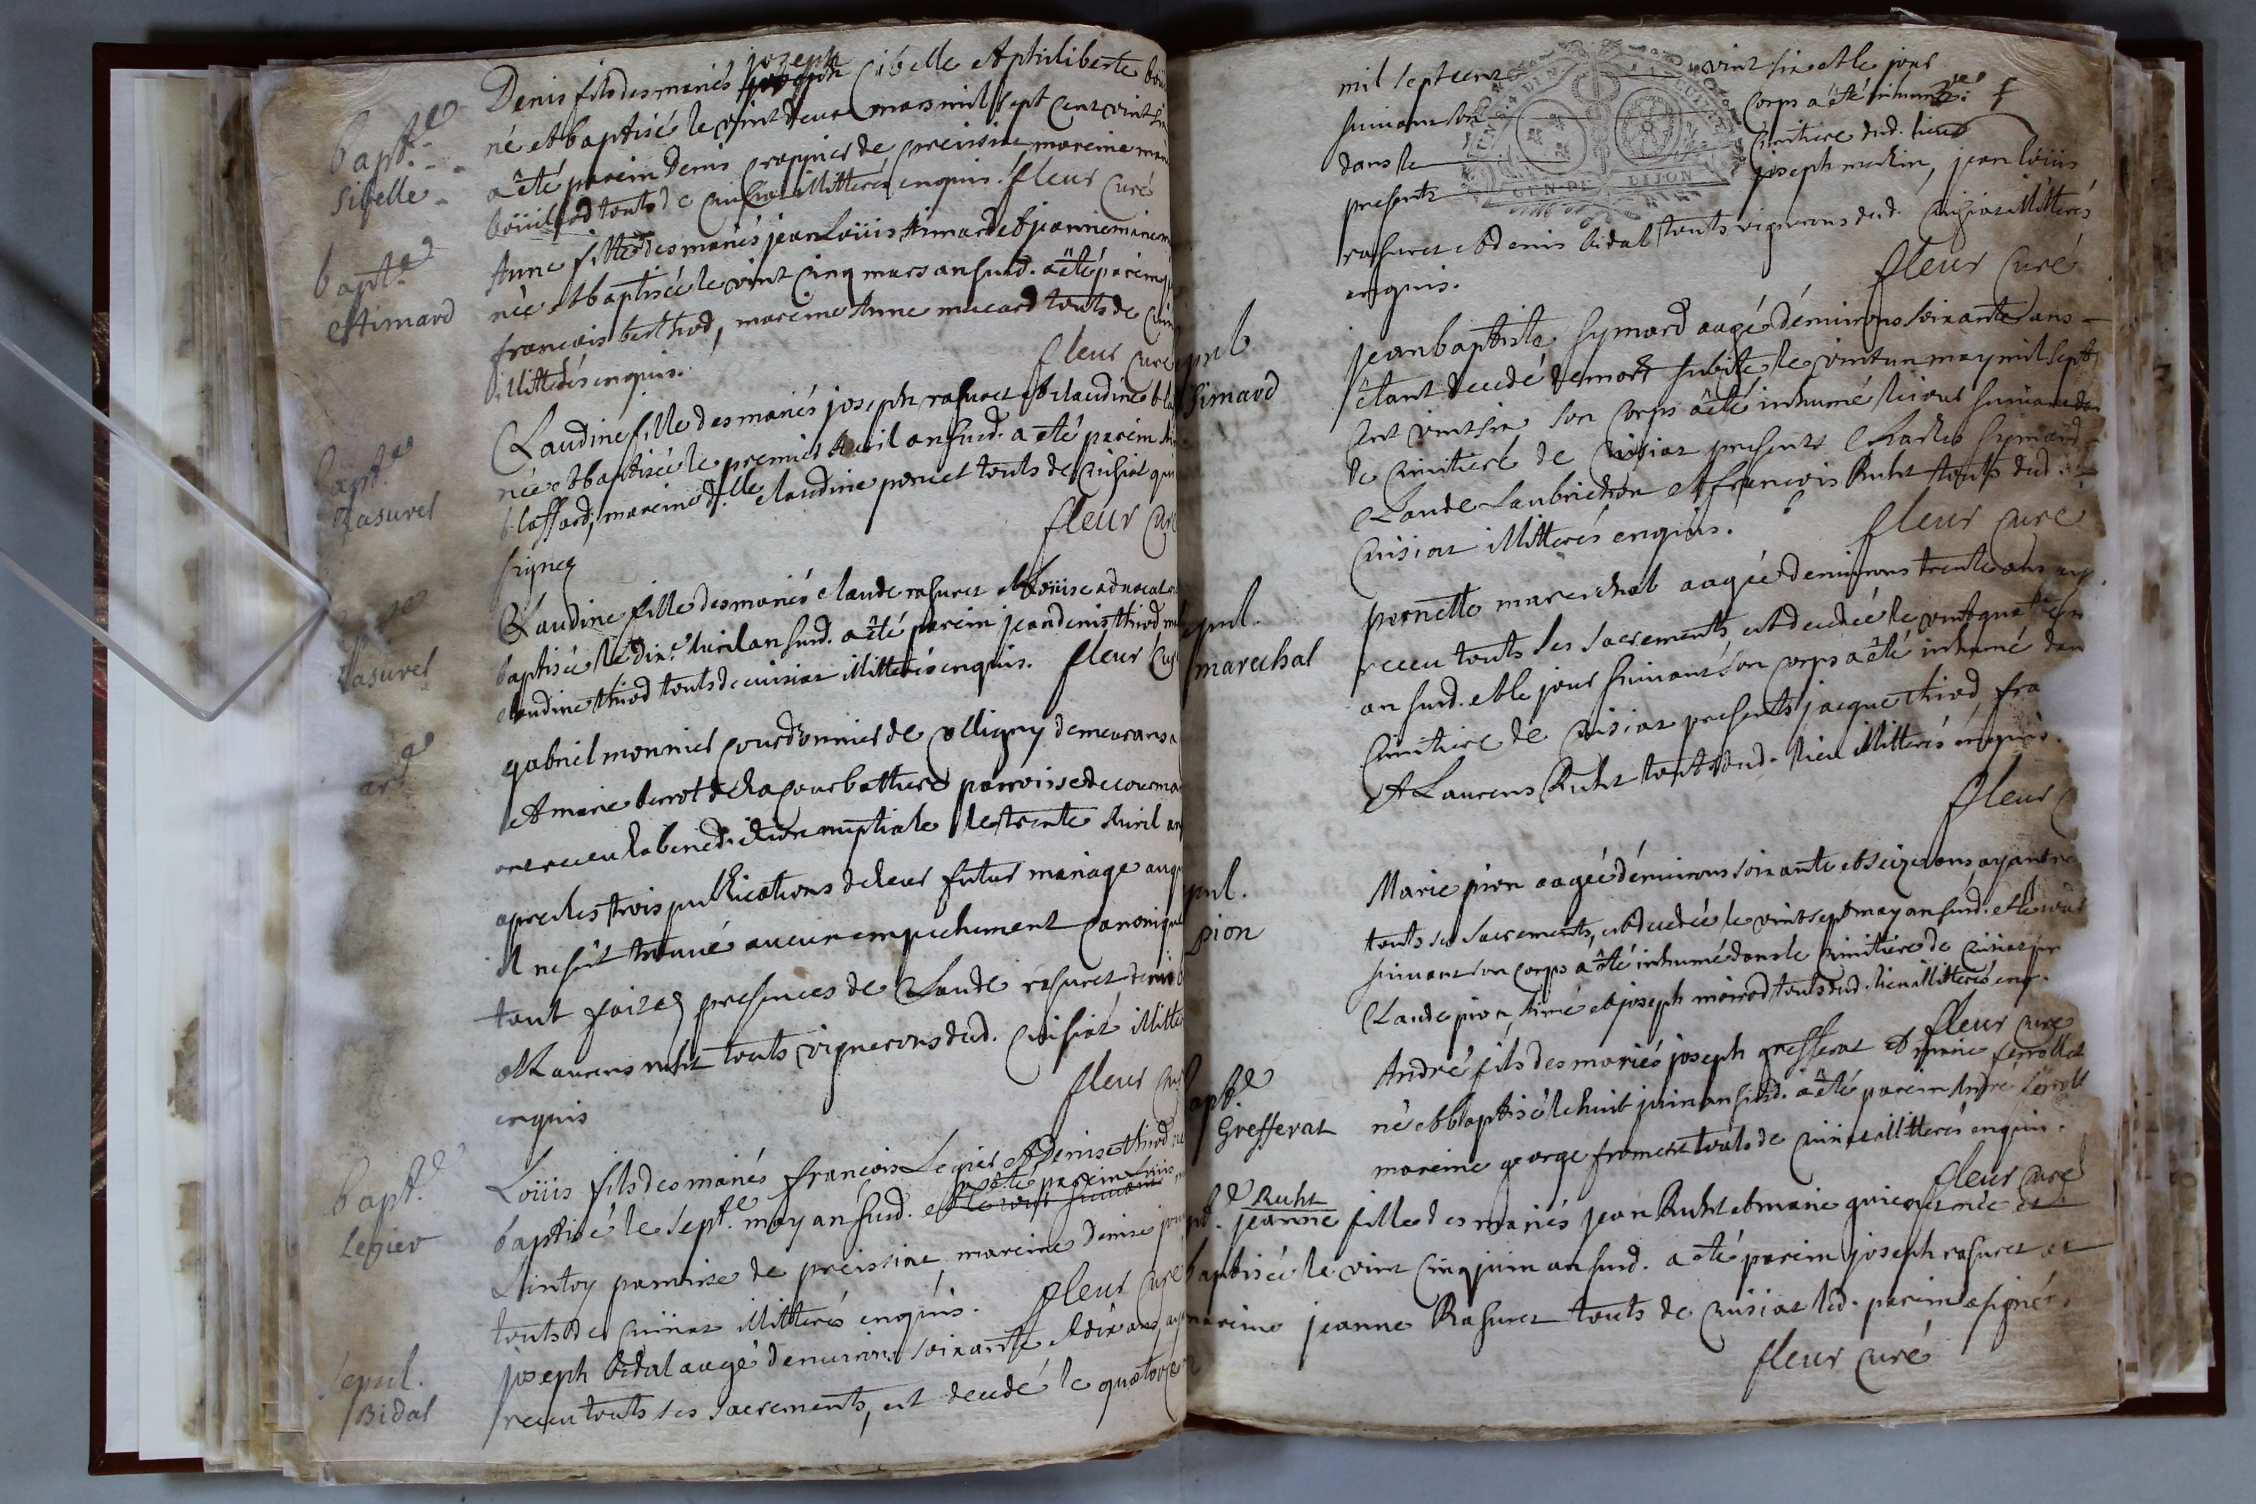 bapt.e
Sibelle
Denis fils des mariés joseph Cibelle et philiberte
né et baptisé le vint deux mars mil sept cent vint six
a êté parein Denis croppier de preissia mareine
boüillod touts de Cuisiat illitterés enquis. fleur curé
bapt.e
Aimard
Anne fille des mariés jean Loüis Aimard et jeanne marie
née et baptisée le vint cinq mars an susd. a êté parein
francois berthod, mareine Anne mucard touts de
illitterés enquis.
fleur curé
bapt.e
Rasuret
Claudine fille des mariés joseph rasuret et claudine
née et baptisée le premier Avril an susd. a êté parein
blaffard, mareine d.lle claudine poncet touts de Cuisiat qui
signez
fleur curé
Rasuret
Claudine fille des mariés claude rasuret et Loüise
baptisée le dix.e Avril an susd. a êté parein jean denis thiod
claudine thiod touts de cuisiat illitterés enquis. fleur curé
gabriel monnier courdonnier de colligny demeurans
et marie de la courbattiere parroisse de
ont receu la benediction nuptiale le trente Avril an
apres les trois publications de leur futur mariage
il ne s'êt trouvé aucun empechement canonique
tout fait es presences de Claude rasuret denis
et Laurens ruht touts vignerons dud. Cuisiat
enquis
fleur curé
bapt.e
Legier
Loüis fils des mariés francois Legier et Denise thiod
a êté parein Loüis
baptisé le sept.e may an susd. et le jour suivant
Lintoy parroisse de preissiat mareine denise
touts de Cuisiat illitterés enquis. fleur curé
sepul.
Bidal
joseph bidal aagé d'environs soixante et dix ans
receu touts ses sacrements, est decedé le quatorze
mil sept cent vint six et le jour
suivant son corps a êté inhumé
dans le cimitiere dud. lieu
presents joseph merlin, jean loüis
GEN. DE DIJON
rasuret et denis bidal touts vignerons dud. Cuisiat illitterés
enquis.
fleur curé
Simard
jean baptiste Symard aagé d'environs soixante ans
êtant decedé de mort subite le vint un may mil sept
cent vint six son corps a êté inhumé le jour suivant
le cimitiere de Cuisiat presents Charles Symard
Claude Laubrichon et francois Ruht touts dud.
Cuisiat illitterés enquis.
fleur curé
marechal
pernette marechal aagée d'environs trente ans
receu touts ses sacrements, est decedée le vint quatre
an susd. et le jour suivant son corps a êté inhumé
cimitiere de Cuisiat presents jacque thiod,
et Laurens Ruht touts dud. lieu illitterés enquis.
fleur
pul.
pion
Marie pion aagée d'environs soixante et seize ans, ayant
touts ses sacrements, est decedée le vint sept may an susd. et le jour
suivant son corps a êté inhumé dans le cimitiere de Cuisiat
Claude pion, Aimé et joseph moirod touts dud. lieu illitterés enq.
fleur curé
Grefferat
André fils des mariés joseph grefferat et marie ferrollet
né et baptisé le huit juin an susd. a êté parein André
mareine george froment touts de Cuisiat illitterés enquis.
fleur curé
Ruht
jeanne fille des mariés jean Ruht et marie née et
baptisée le vint cinq juin an susd. a êté parein joseph rasuret et
mareine jeanne Rasuret touts de Cuisiat led. parein a signé.
fleur curé